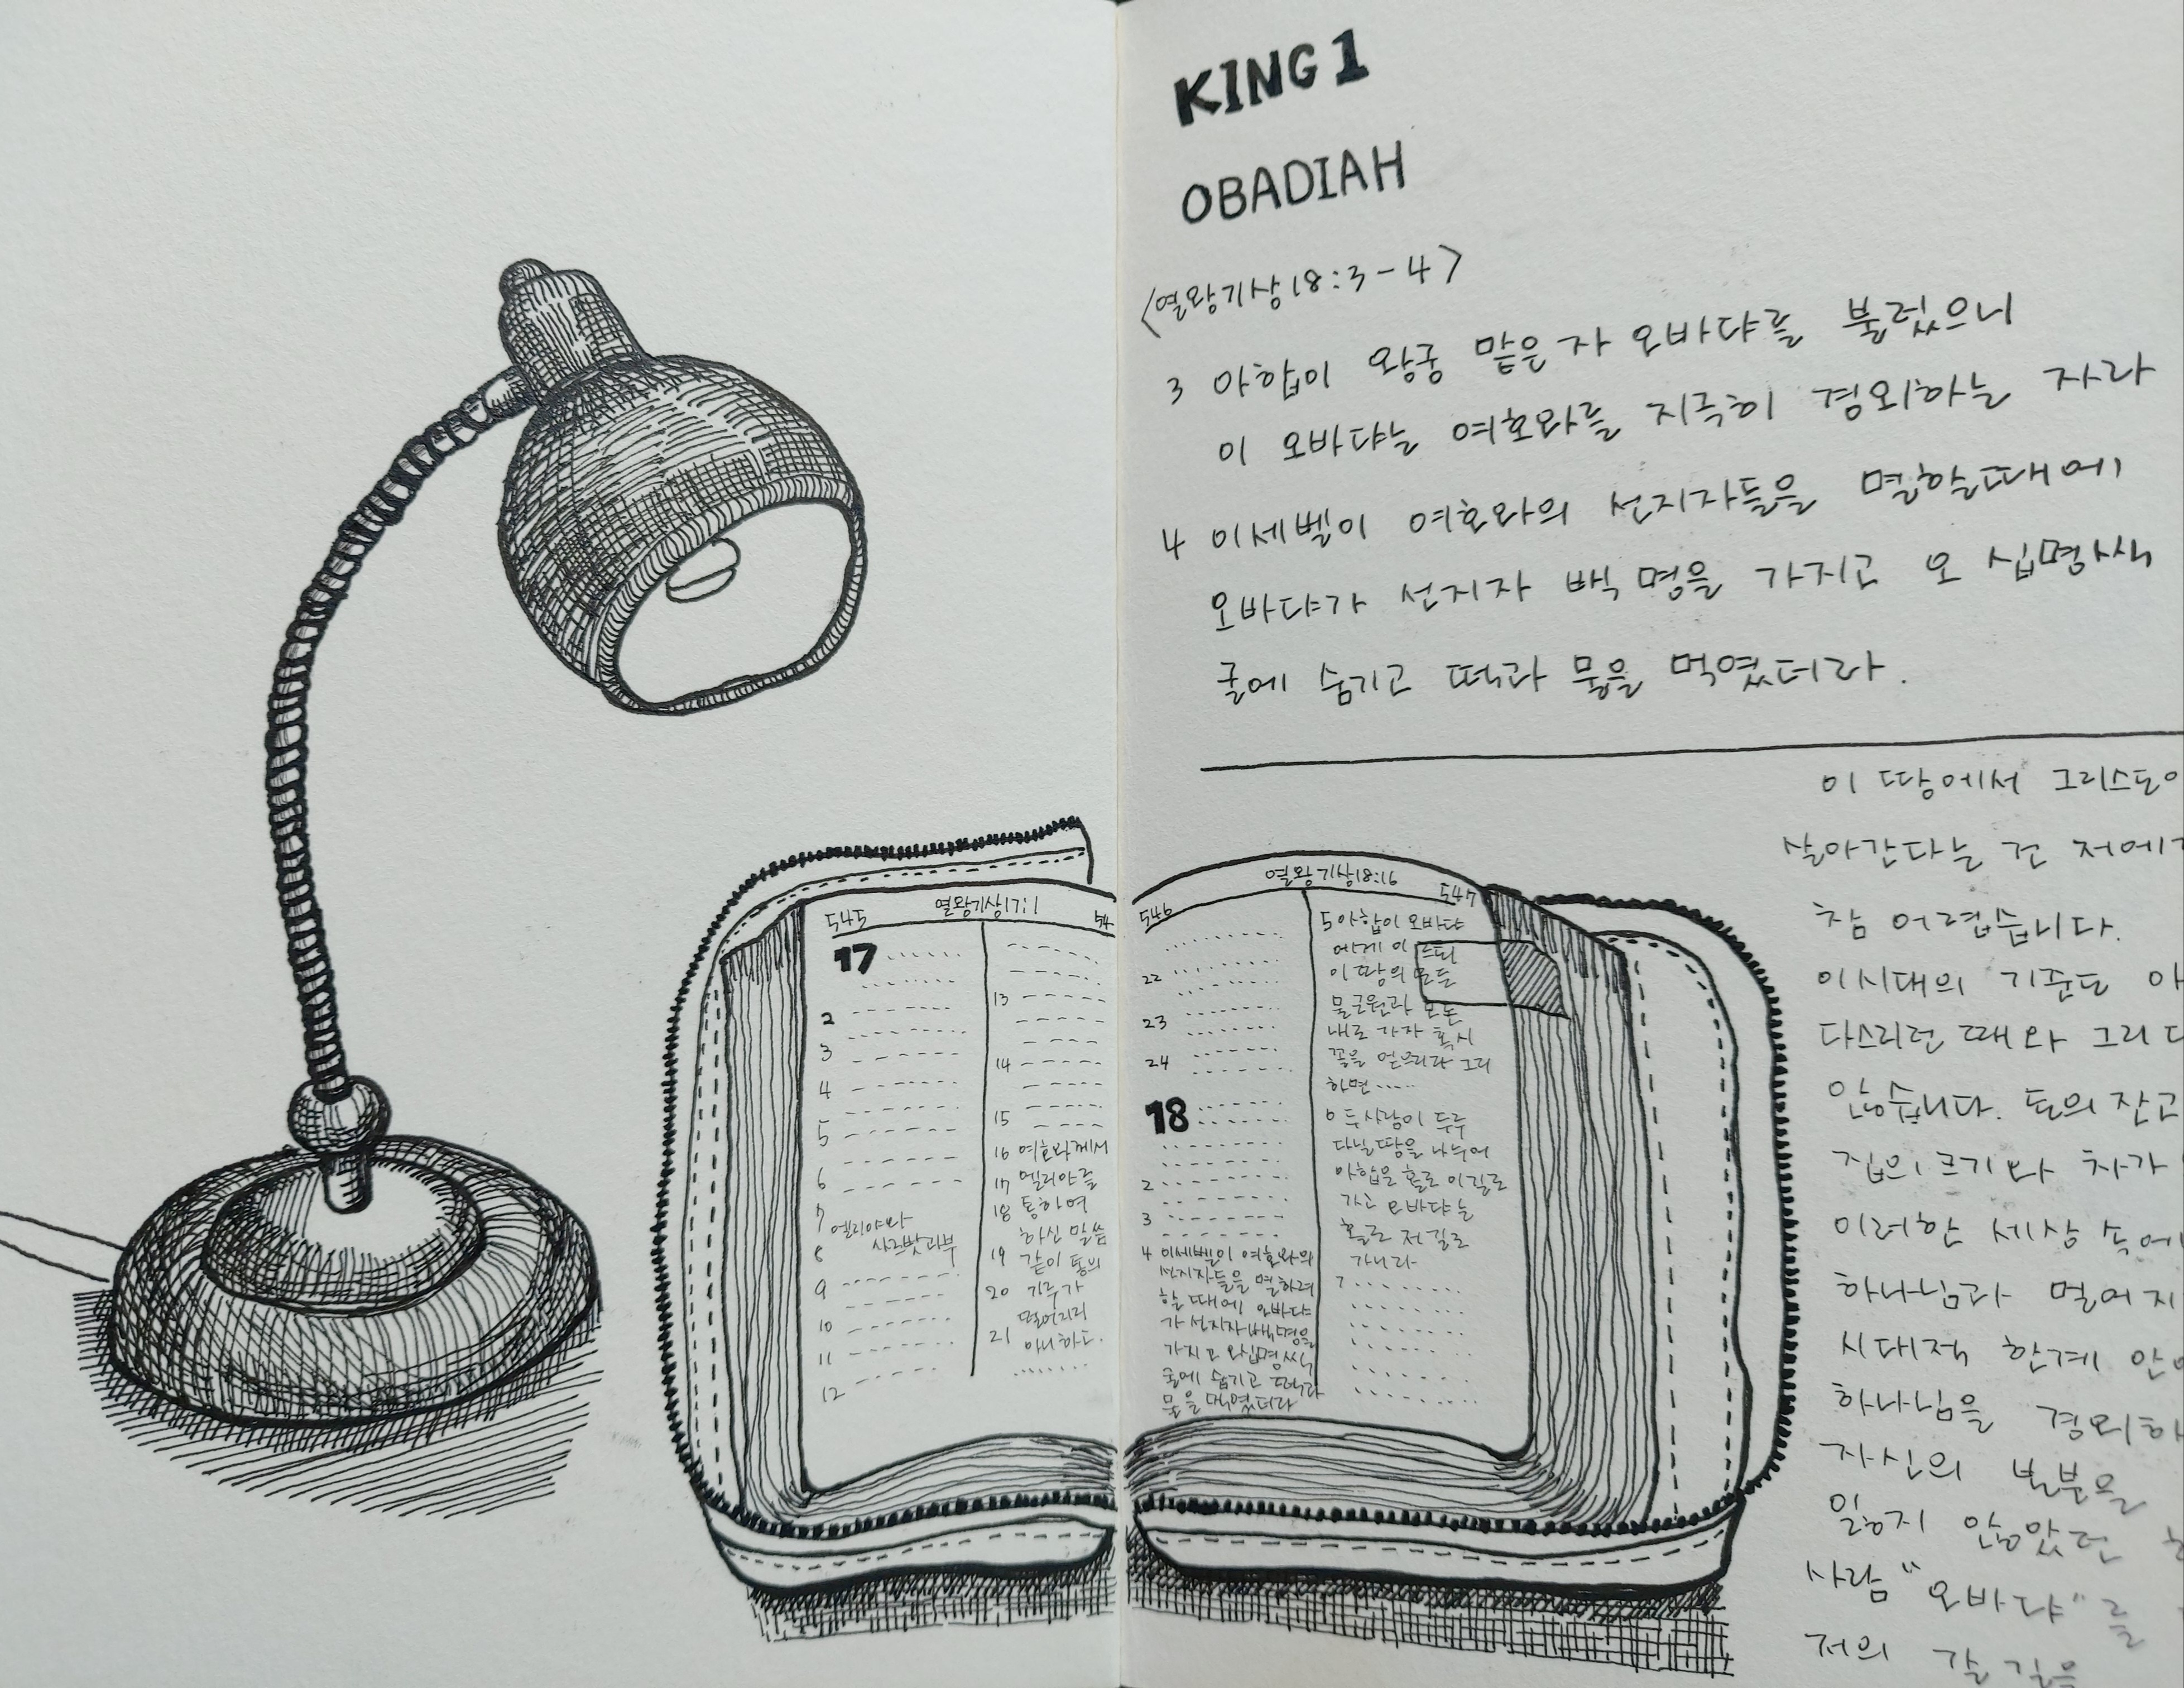 KING 1
OBADIAH
<열왕기상18:3-4>
3 아합이 왕궁 맡은자 오바댜를 불렀으니
이 오바댜는 여호와를 지극히 경외하는 자라
4 이세벨이 여호와의 선지자들을 멸할때에
오바댜가 선지자 백명을 가지고 오 십명씩
굴에 숨기고 떡과 물을 먹였더라.
545 열왕기상17:1 54
17
2
3
4
5
6
7 엘리야와
8 사르밧과부
9
10
11
12
13
14
15
16 여호와께서
17 엘리야를
18 통하여
하신 말씀
19 같이 통의
20 가루가
떨어지지
21 아니하고.
546 열왕기상18:16 547
22
23
24
18
2
3
4 이세벨이 여호와의
선지자들을 멸하려
할 때에 오바댜
가 선지자백명을
가지고 오십명씩
굴에 숨기고 떡과
물을 먹였더라
5 아합이 오바댜
에게 이르되
이 땅의 모든
물근원과 모든
내로 가자 혹시
꼴을 얻으리라 그리
하면......
6 두사람이 두루
다닐땅을 나누어
아합은 홀로 이길로
가고 오바댜는
홀로 저길로
가니라
7
이 땅에서 그리스도
살아간다는 건 저에
참 어렵습니다.
이시대의 기준도 아
다스리던 때와 그리 다
않습니다. 돈의 잔고
집의 크기와 차가
이러한 세상 속에
하나님과 멀어지
시대적 한계 안
하나님을 경외하
자신의 본분을
잃지 않았던
사람 "오바댜"를
저의 갈 길을